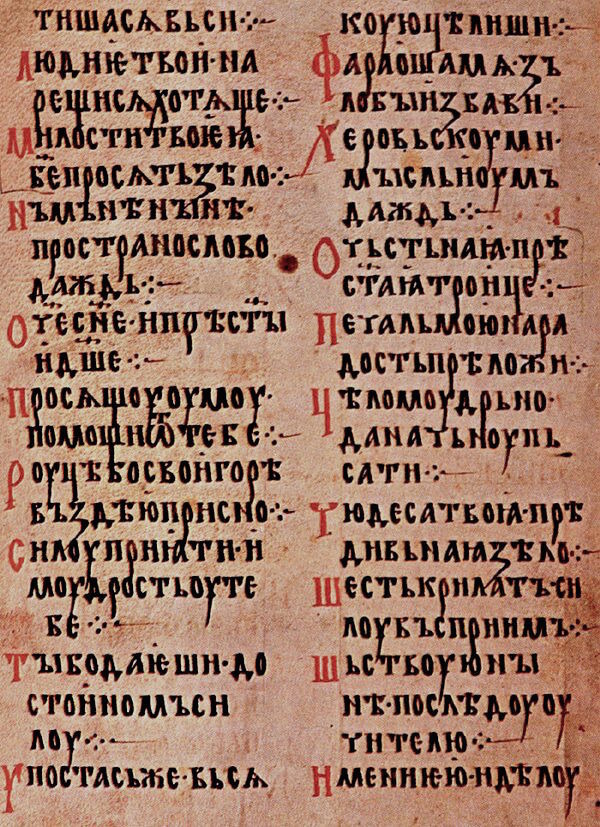 тишасѧ вьси ⁘
людиѥ твои · на
рещисѧ хотѧще ⁘
милости твоѥꙗ ·
б҃е просѧть ꙁѣло ⁘
нъ мънѣ нынѣ ·
пространо слово
даждь ⁘
оч҃е сн҃е · и прѣст҃ы
и дш҃е ⁘
просѧщюоумоу ·
помощи ѿ тебе ⁘
роуцѣ бо свои горѣ
въздѣю присно ⁘
силоу приꙗти · и
моудрость оу те
бе ⁘
ты бо даѥши · до
стоиномъ си
лоу ⁘
упостась же · вьсѧ
коую цѣлиши ⁘
фараоша мѧ · зъ
лобы избави ⁘
херовьскоу ми ·
мысль и оумъ
даждь ⁘
о чьстьнаꙗ · прѣ
ст҃аꙗ троице ⁘
печаль мою на ра
дость прѣложи ⁘
цѣломоудрьно ·
да начьноу пь
сати ⁘
чюдеса твоꙗ · прѣ
дивьнаꙗ ꙁѣло ⁘
шесть крилатъ · си
лоу въсприимъ ⁘
шьствоую ны
нѣ · по слѣдоу оу
чителю ⁘
имени ѥю · и дѣлоу